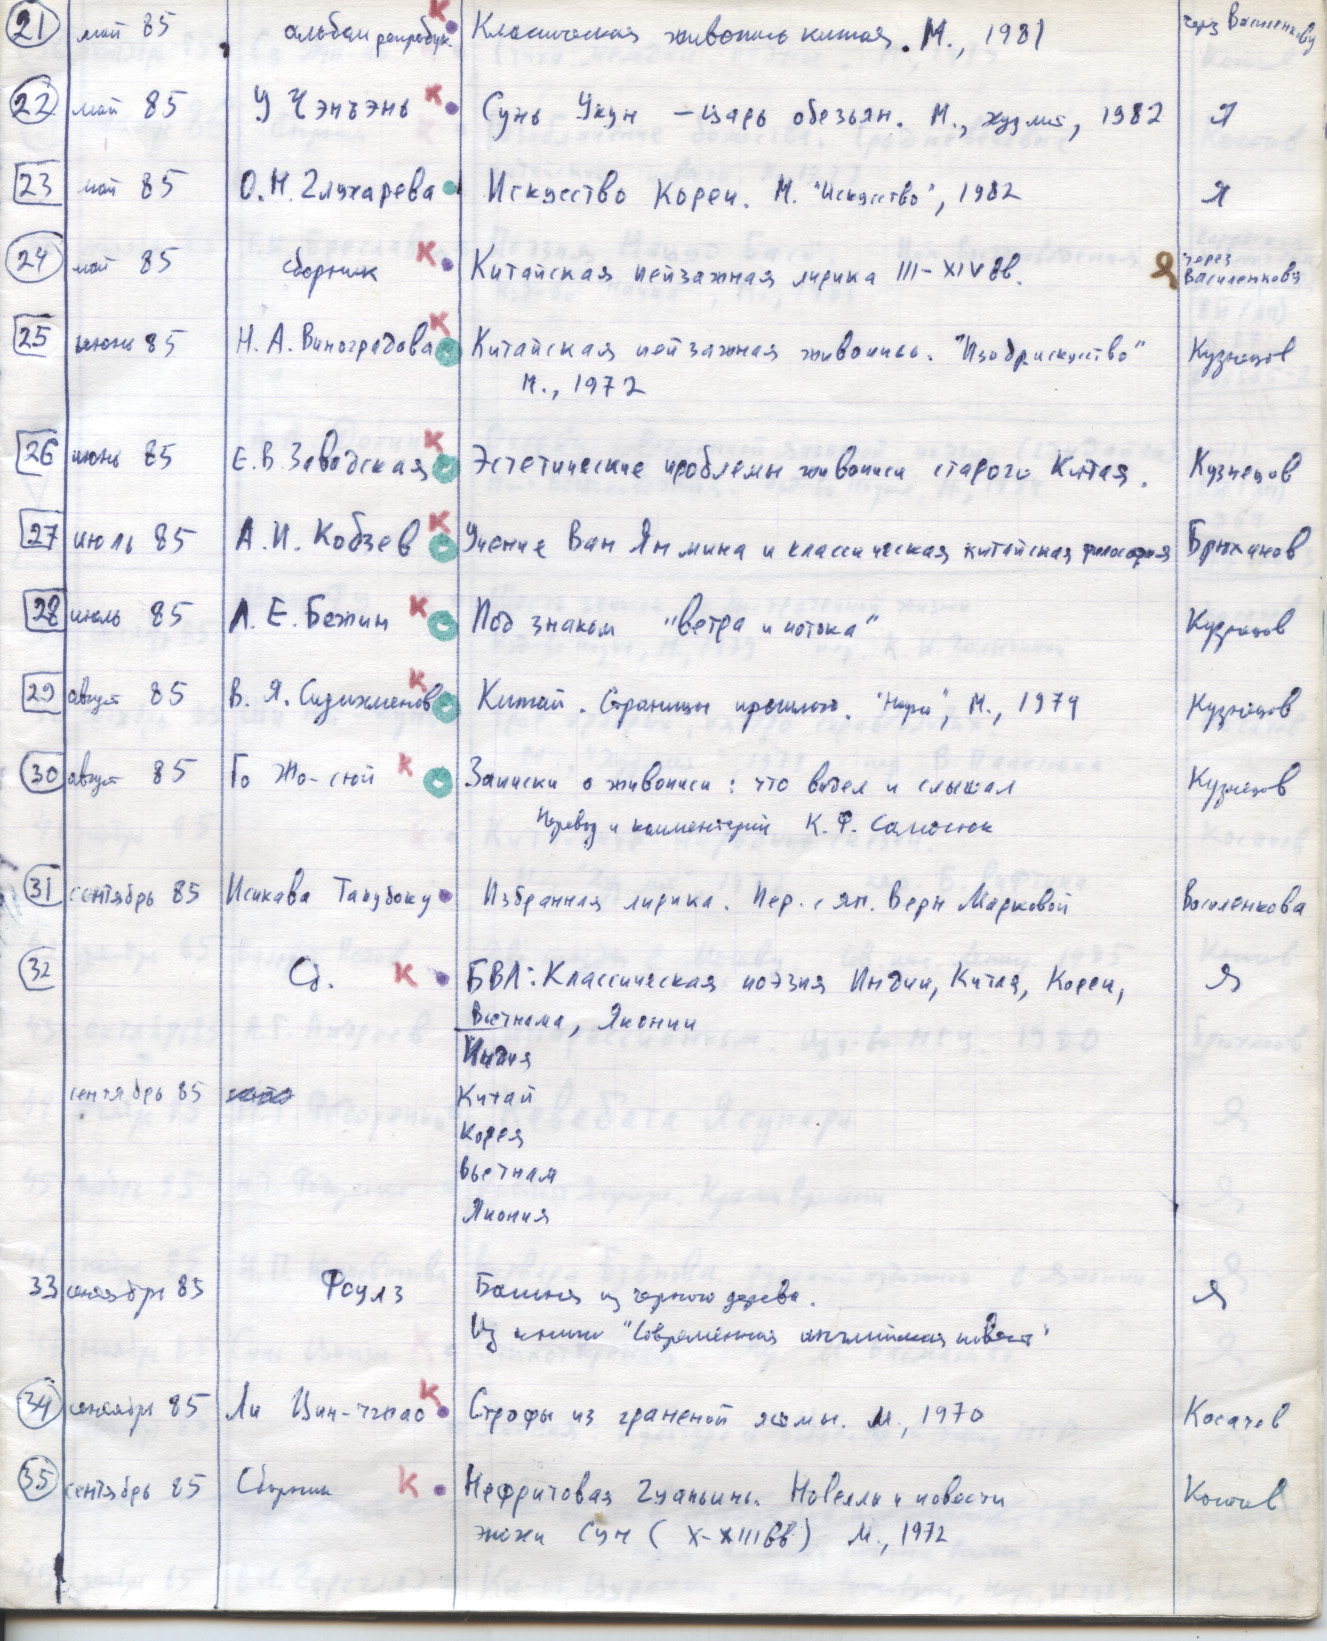 21 май 85 альбом репродук. К Классическая живопись китая. М., 1981 через Василенкову
22 май 85 У Чэнъэнь К Сунь Укун — царь обезьян. М., худлит, 1982 Я
23 май 85 О.Н. Глухарева Искусство Кореи. М. "Искусство", 1982 Я
24 май 85 сборник К Китайская пейзажная лирика III-XIV вв. Я через Василенкову
25 июнь 85 Н.А. Виноградова К Китайская пейзажная живопись. "Изобрискусство" Кузнецов
М., 1972
26 июнь 85 Е.В. Завадская К Эстетические проблемы живописи старого Китая. Кузнецов
27 июль 85 А.И. Кобзев К Учение Ван Янмина и классическая китайская философия Брюханов
28 июль 85 Л.Е. Бежин К Под знаком "ветра и потока" Кузнецов
29 август 85 В.Я. Сидихменов К Китай. Страницы прошлого. "Наука", М., 1974 Кузнецов
30 август 85 Го Жо-сюй К Записки о живописи: что видел и слышал Кузнецов
Перевод и комментарий К.Ф. Самосюк
31 сентябрь 85 Исикава Такубоку Избранная лирика. Пер. с яп. Веры Марковой Василенкова
32 Сб. К БВЛ: Классическая поэзия Индии, Китая, Кореи, Я
Вьетнама, Японии
Индия
сентябрь 85 Китай
Корея
Вьетнам
Япония
33 сентябрь 85 Фаулз Башня из черного дерева. Я
Из книги "Современная английская повесть"
34 сентябрь 85 Ли Цин-чжао К Строфы из граненой яшмы. М., 1970 Косачев
35 сентябрь 85 Сборник К Нефритовая Гуаньинь. Новеллы и повести
эпохи Сун (X-XIII вв) М., 1972